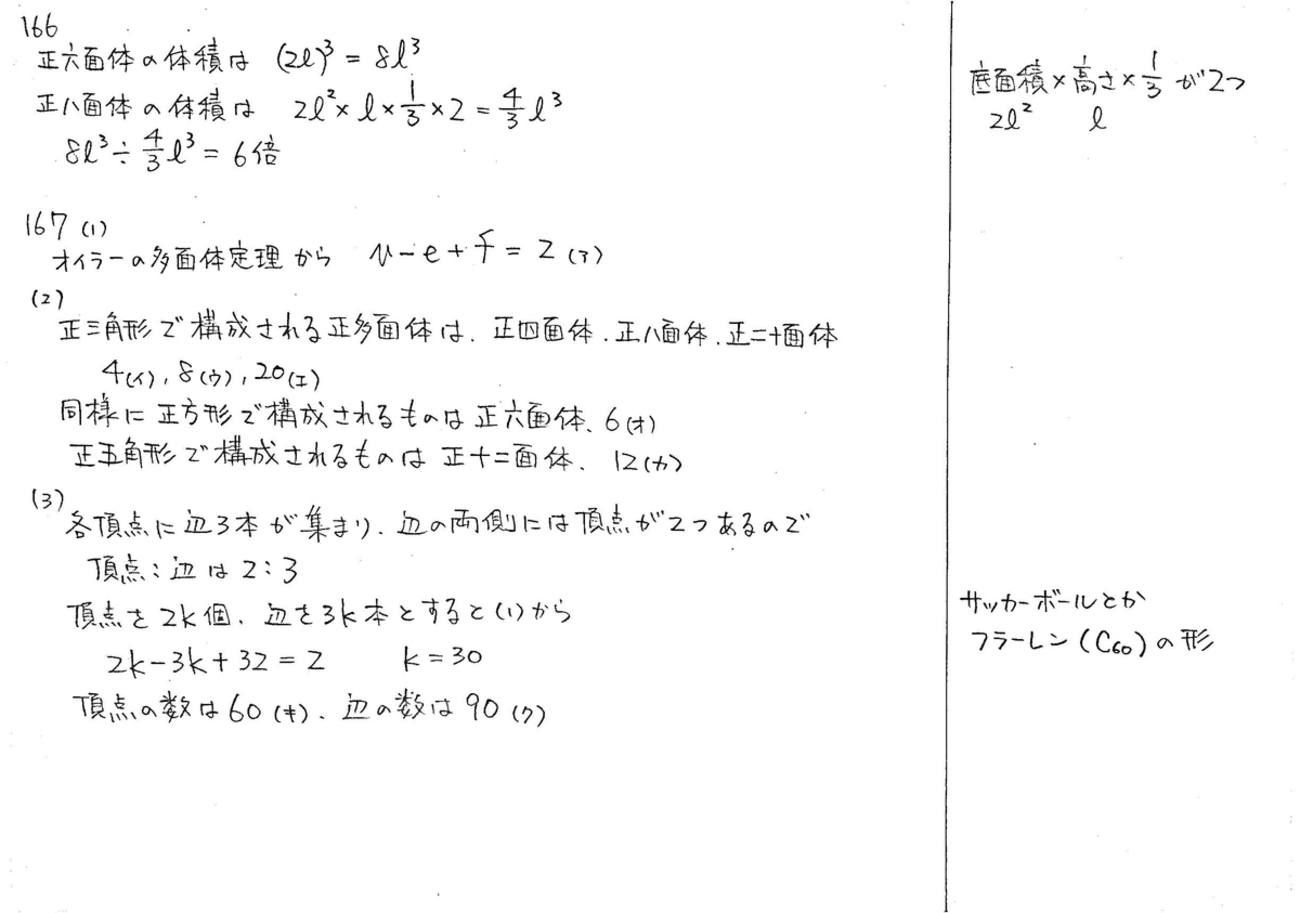 166
正六面体の体積は (2ℓ)³ = 8ℓ³
正八面体の体積は 2ℓ² × ℓ × 1/3 × 2 = 4/3 ℓ³
8ℓ³ ÷ 4/3 ℓ³ = 6倍
167 (1)
オイラーの多面体定理から v - e + f = 2 (ア)
(2)
正三角形で構成される正多面体は、正四面体、正八面体、正二十面体
4(イ), 8(ウ), 20(エ)
同様に正方形で構成されるものは正六面体、6(オ)
正五角形で構成されるものは正十二面体、12(カ)
(3)
各頂点に辺3本が集まり、辺の両側には頂点が2つあるので
頂点:辺は2:3
頂点を2k個、辺を3k本とすると(1)から
2k - 3k + 32 = 2 k = 30
頂点の数は60(キ)、辺の数は90(ク)
底面積 × 高さ × 1/3 が2つ
2ℓ² ℓ
サッカーボールとか
フラーレン(C₆₀)の形